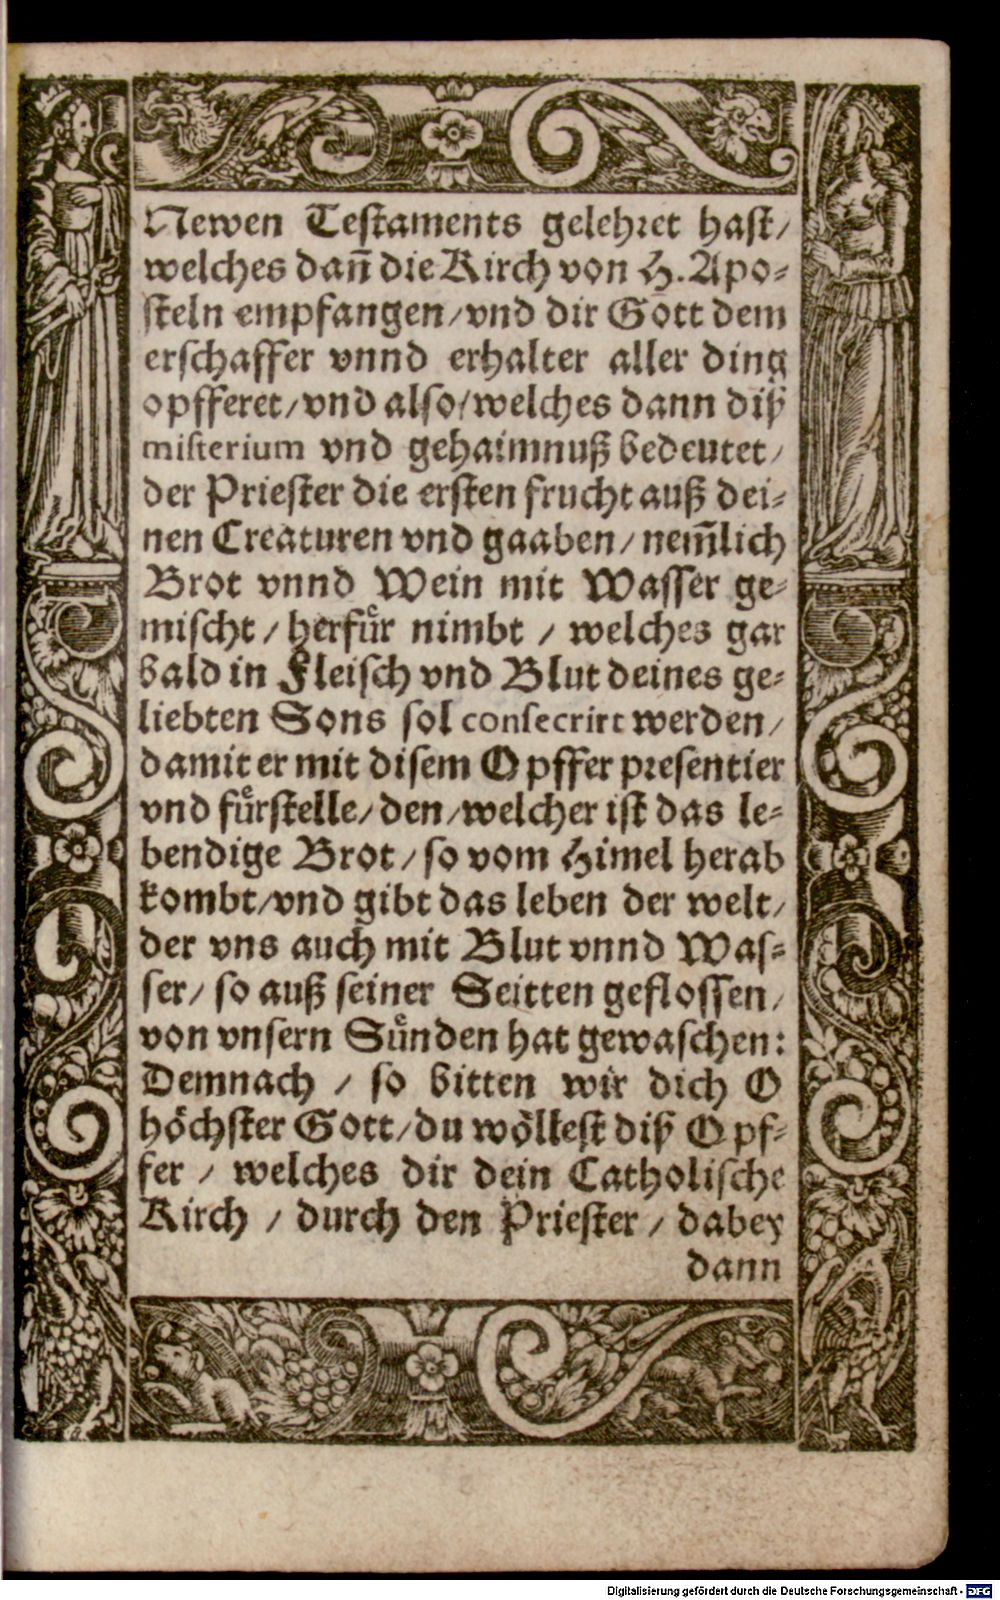 Newen Testaments gelehret hast/
welches dañ die Kirch von H. Apo-
steln empfangen/vnd dir Gott dem
erschaffer vnnd erhalter aller ding
opfferet/vnd also/welches dann diß
misterium vnd gehaimnuß bedeutet/
der Priester die ersten frucht auß dei-
nen Creaturen vnd gaaben/nem̃lich
Brot vnnd Wein mit Wasser ge-
mischt/herfuͤr nimbt/welches gar
bald in Fleisch vnd Blut deines ge-
liebten Sons sol consecrirt werden/
damit er mit disem Opffer presentier
vnd fuͤrstelle/den/welcher ist das le-
bendige Brot/so vom Himel herab
kombt/vnd gibt das leben der welt/
der vns auch mit Blut vnnd Was-
ser/so auß seiner Seitten geflossen/
von vnsern Suͤnden hat gewaschen:
Demnach/so bitten wir dich O
hoͤchster Gott/du woͤllest diß Opf-
fer/welches dir dein Catholische
Kirch/durch den Priester/dabey
dann
Digitalisierung gefördert durch die Deutsche Forschungsgemeinschaft - DFG